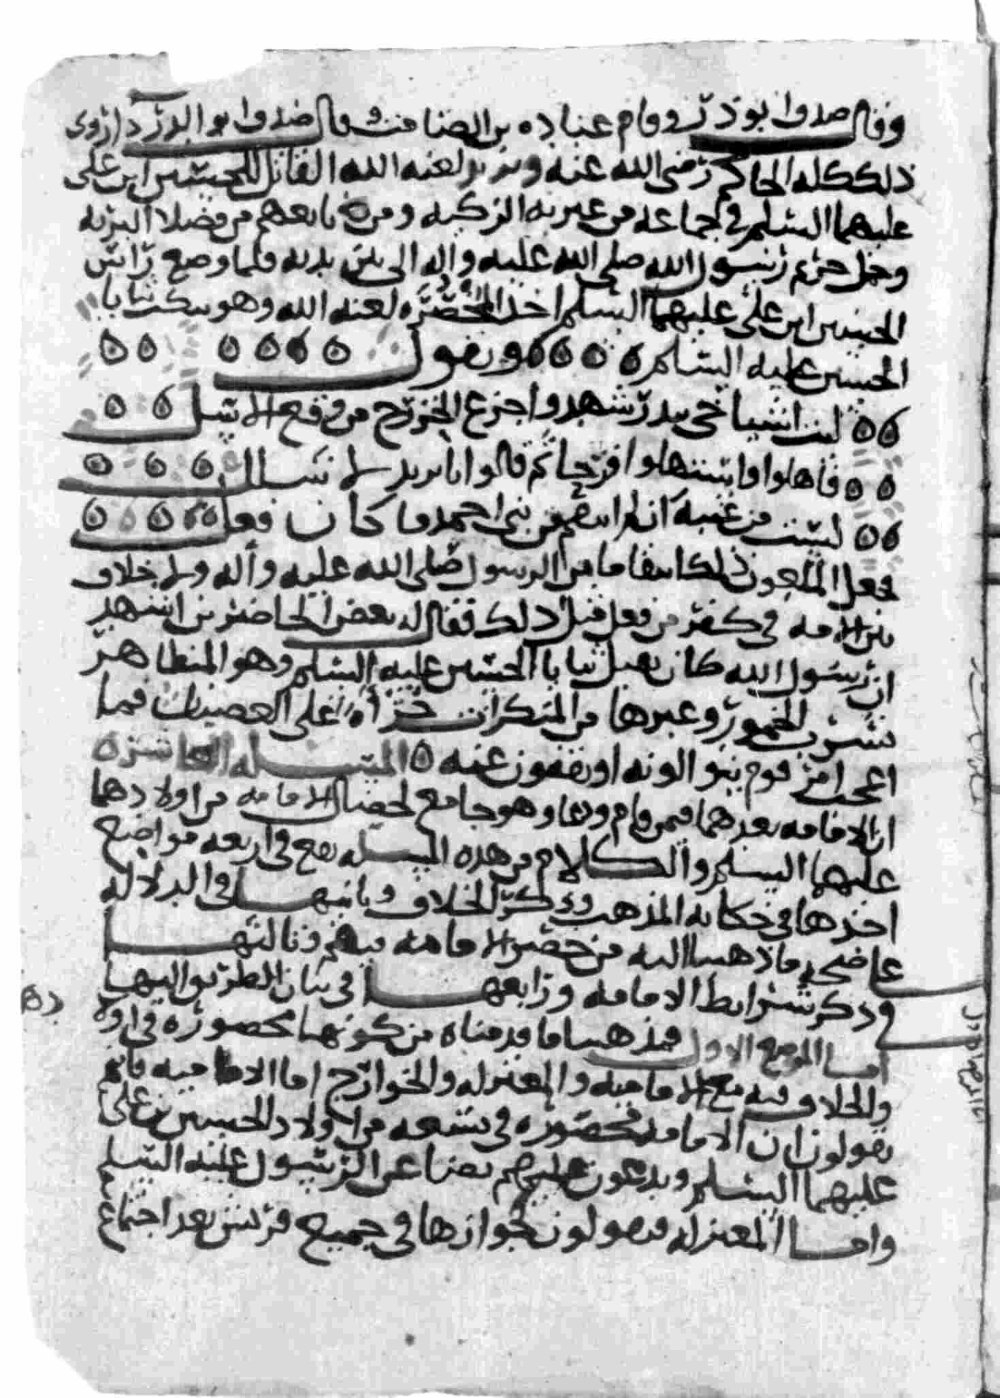 وقال صدق ابو ذر وقام عباده بن الصامت وقال صدق ابو الدرداء روى
ذلك كله الحاكم رضي الله عنه ويزيد لعنه الله القاتل للحسين ابن علي
عليهما السلم في جماعه من عترته الزكيه ومن تابعهم من فضلا البريه
وحمل حرم رسول الله صلى الله عليه واله الى بين يديه فلما وضع راس
الحسين ابن علي عليهما السلم اخذ المخصره لعنه الله وهو ينكت ثنايا
الحسين عليه السلم ويقول
ليت اشياخي ببدر شهدوا جزع الخزرج من وقع الاسل
فاهلوا واستهلوا فرحا ثم قالوا يا يزيد لا تسل
لست من عتبه ان لم انتقم من بني احمد ما كان فعل
فجعل الملعون ذلك انتقاما من الرسول صلى الله عليه واله ولا خلاف
بين الامه في كفر من فعل مثل ذلك فقال له بعض الحاضرين اشهد
ان رسول الله كان يقبل ثنايا الحسين عليه السلم وهو المتظاهر
بشرب الخمور وغيرها من المنكرات جراه على العصيان فما
اعجب امر قوم يتوالونه او يقفون عنه المسله العاشره
ان الامامه بعدهما فيمن قام ودعا وهو جامع لخصال الامامه من اولادهما
عليهما السلم والكلام من هذه المسله يقع في اربعه مواضع
احدها في حكايه المذهب وذكر الخلاف وثانيها في الدلاله
على صحه ما ذهبنا اليه من حصر الامامه فيهم وثالثها
في ذكر شرايط الامامه ورابعها في بيان الطريق اليها
اما الموضع الاول فمذهبنا ما قدمناه من كونها محصوره في اولا
والخلاف فيه مع الاماميه والمعتزله والخوارج اما الاماميه فانهم
يقولون ان الامامه محصوره في تسعه من اولاد الحسين بن علي
عليهما السلم ويدعون عليهم نصا عن الرسول عليه السلم
واما المعتزله فيقولون بجوازها في جميع قريش بعد اجتماع